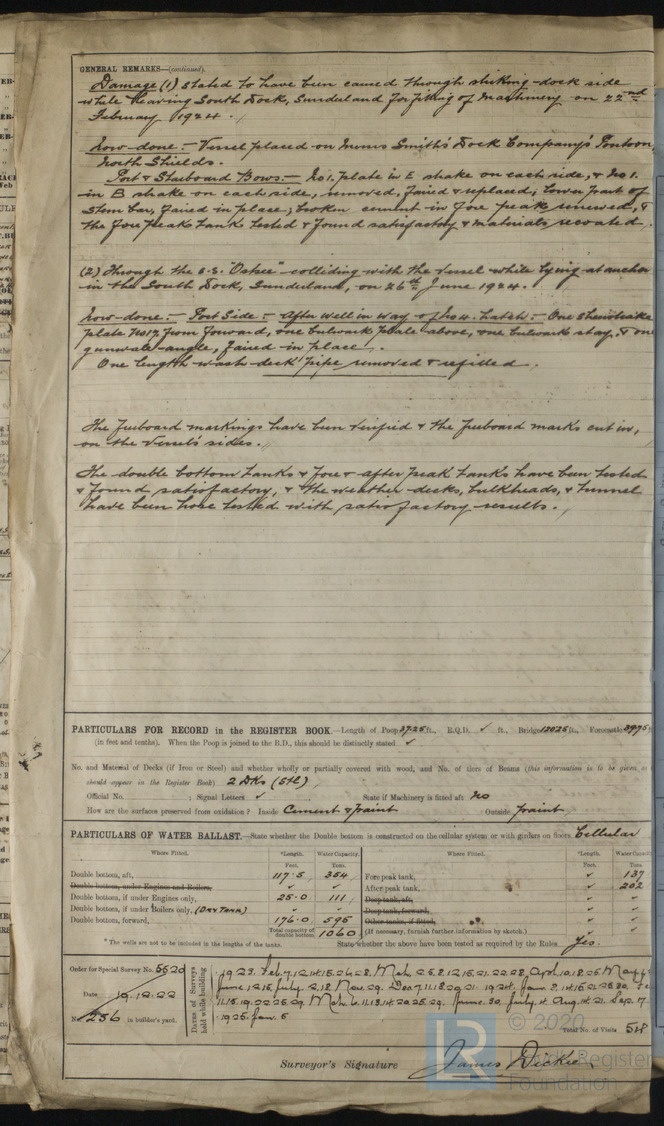 GENERAL REMARKS—(continued).
Damage (1) stated to have been caused through striking dock side
while leaving South Dock, Sunderland for fitting of Machinery on 22nd
February 1924.
Now done:— Vessel placed on Messrs Smith's Dock Company's Pontoon,
North Shields.
Port & Starboard Bows:— No 1. plate in E strake on each side, & No 1.
in B strake on each side, removed, faired & replaced; lower part of
Stem bar, faired in place; broken cement in fore peak renewed, &
the fore peak tank tested & found satisfactory & materials recoated.
(2) Through the S.S. colliding with the vessel while lying at anchor
in the South Dock, Sunderland, on 26th June 1924.
Now done:— Port Side:— After well in way of No 4. hatch:— One Sheerstrake
plate No 17 from forward, one bulwark plate above, one bulwark stay, & one
gunwale angle, faired in place.
One length wash deck pipe removed & refitted.
The freeboard markings have been verified & the freeboard marks cut in,
on the vessel's sides.
The double bottom tanks & fore & after peak tanks have been tested
& found satisfactory, & the weather decks, bulkheads, & tunnel
have been hose tested with satisfactory results.
PARTICULARS FOR RECORD in the REGISTER BOOK.—Length of Poop 37.25 ft., R.Q.D. ✓ ft., Bridge 120.25 ft., Forecastle 39.75 f
(in feet and tenths). When the Poop is joined to the B.D., this should be distinctly stated ✓
No. and Material of Decks (if Iron or Steel) and whether wholly or partially covered with wood, and No. of tiers of Beams (this information is to be given as
should appear in the Register Book) 2 Dks (Stl)
Official No. ; Signal Letters ✓ State if Machinery is fitted aft No
How are the surfaces preserved from oxidation? Inside Cement & paint Outside paint
PARTICULARS OF WATER BALLAST.—State whether the Double bottom is constructed on the cellular system or with girders on floors Cellular
Where Fitted. *Length. Water Capacity. Where Fitted. *Length. Water Capacity
Feet. Tons. Feet. Tons.
Double bottom, aft, 117.5 354 Fore peak tank, ✓ 137
Double bottom, under Engines and Boilers, ✓ ✓ After peak tank, ✓ 202
Double bottom, if under Engines only, 25.0 111 Deep tank, aft, ✓ ✓
Double bottom, if under Boilers only, (DRY TANK) ✓ ✓ Deep tank, forward, ✓ ✓
Double bottom, forward, 176.0 595 Other tanks, if fitted, ✓ ✓
Total capacity of double bottom 1060 (If necessary, furnish further information by sketch.)
* The wells are not to be included in the lengths of the tanks. State whether the above have been tested as required by the Rules Yes.
Order for Special Survey No. 5520
Date 19.12.22
No. 256 in builder's yard.
Dates of Surveys held while building
1923. Feb. 7. 12. 14. 15. 26. 28. Mch.
1925. Jan. 5
Total No. of Visits 54
Surveyor's Signature James Dickie
© 2020
LR
Lloyd's Register
Foundation